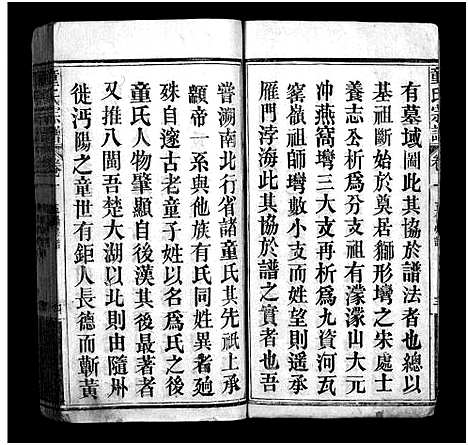 童氏宗譜
有墓域圖此其協於譜法者也總以
基祖斷於始奠居獅形灣之朱處士
養志公析爲分支祖有濛濛山大元
冲燕窩壪三大支再析爲九資河瓦
窰嶺祖師壪小支而姓望則遥承
雁門浡海此其協於譜之實者也吾
嘗溯南北行省諸童氏其先祇上承
顓帝一系與他族有氏同姓異者逈
殊自邃古老童子姓以名爲氏之後
童氏人物肇顯自後漢其後最著者
又推八閩吾楚大湖以北則由隨州
徙沔陽之童世有鉅人長德而蘄黃
童氏宗譜